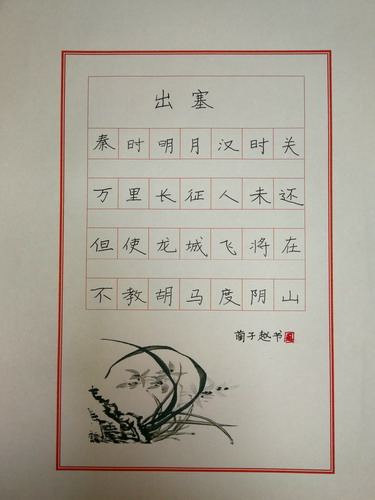 出塞
秦时明月汉时关
万里长征人未还
但使龙城飞将在
不教胡马度阴山
兰子赵书